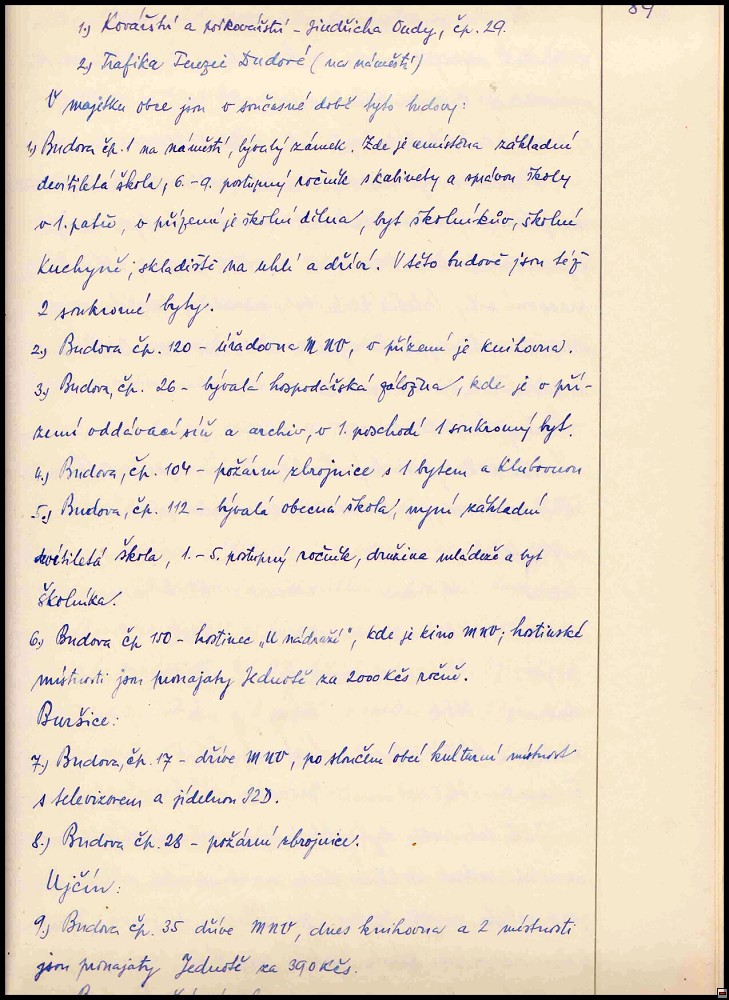 89
1.) Kovářství a podkovářství - Jindřicha Oudy, čp. 29.
2.) Trafika Terezie Dudové (na náměstí)
V majetku obce jsou v současné době tyto budovy:
1.) Budova čp. 1 na náměstí, bývalý zámek. Zde je umístěna základní
devítiletá škola, 6.-9. postupný ročník s kabinety a správou školy
v 1. patře, v přízemí je školní dílna, byt školníkův, školní
kuchyně, skladiště na uhlí a dříví. V této budově jsou též
2 soukromé byty.
2.) Budova čp. 120 - úřadovna MNV, v přízemí je knihovna.
3.) Budova, čp. 26 - bývalá hospodářská záložna, kde je v pří-
zemí oddávací síň a archiv, v 1. poschodí 1 soukromý byt.
4.) Budova, čp. 104 - požární zbrojnice s 1 bytem a klubovnou
5.) Budova, čp. 112 - bývalá obecná škola, nyní základní
devítiletá škola, 1.-5. postupný ročník, družina mládeže a byt
školníka.
6.) Budova čp 150 - hostinec „U nádraží", kde je kino MNV; hostinské
místnosti jsou pronajaty Jednotě za 2000 Kčs ročně.
Buršice:
7.) Budova, čp. 17 - dříve MNV, po sloučení obcí kulturní místnost
s televizorem a jídelnou JZD.
8.) Budova čp. 28 - požární zbrojnice.
Ujčín:
9.) Budova čp. 35 dříve MNV, dnes knihovna a 2 místnosti
jsou pronajaty Jednotě za 390 Kčs.